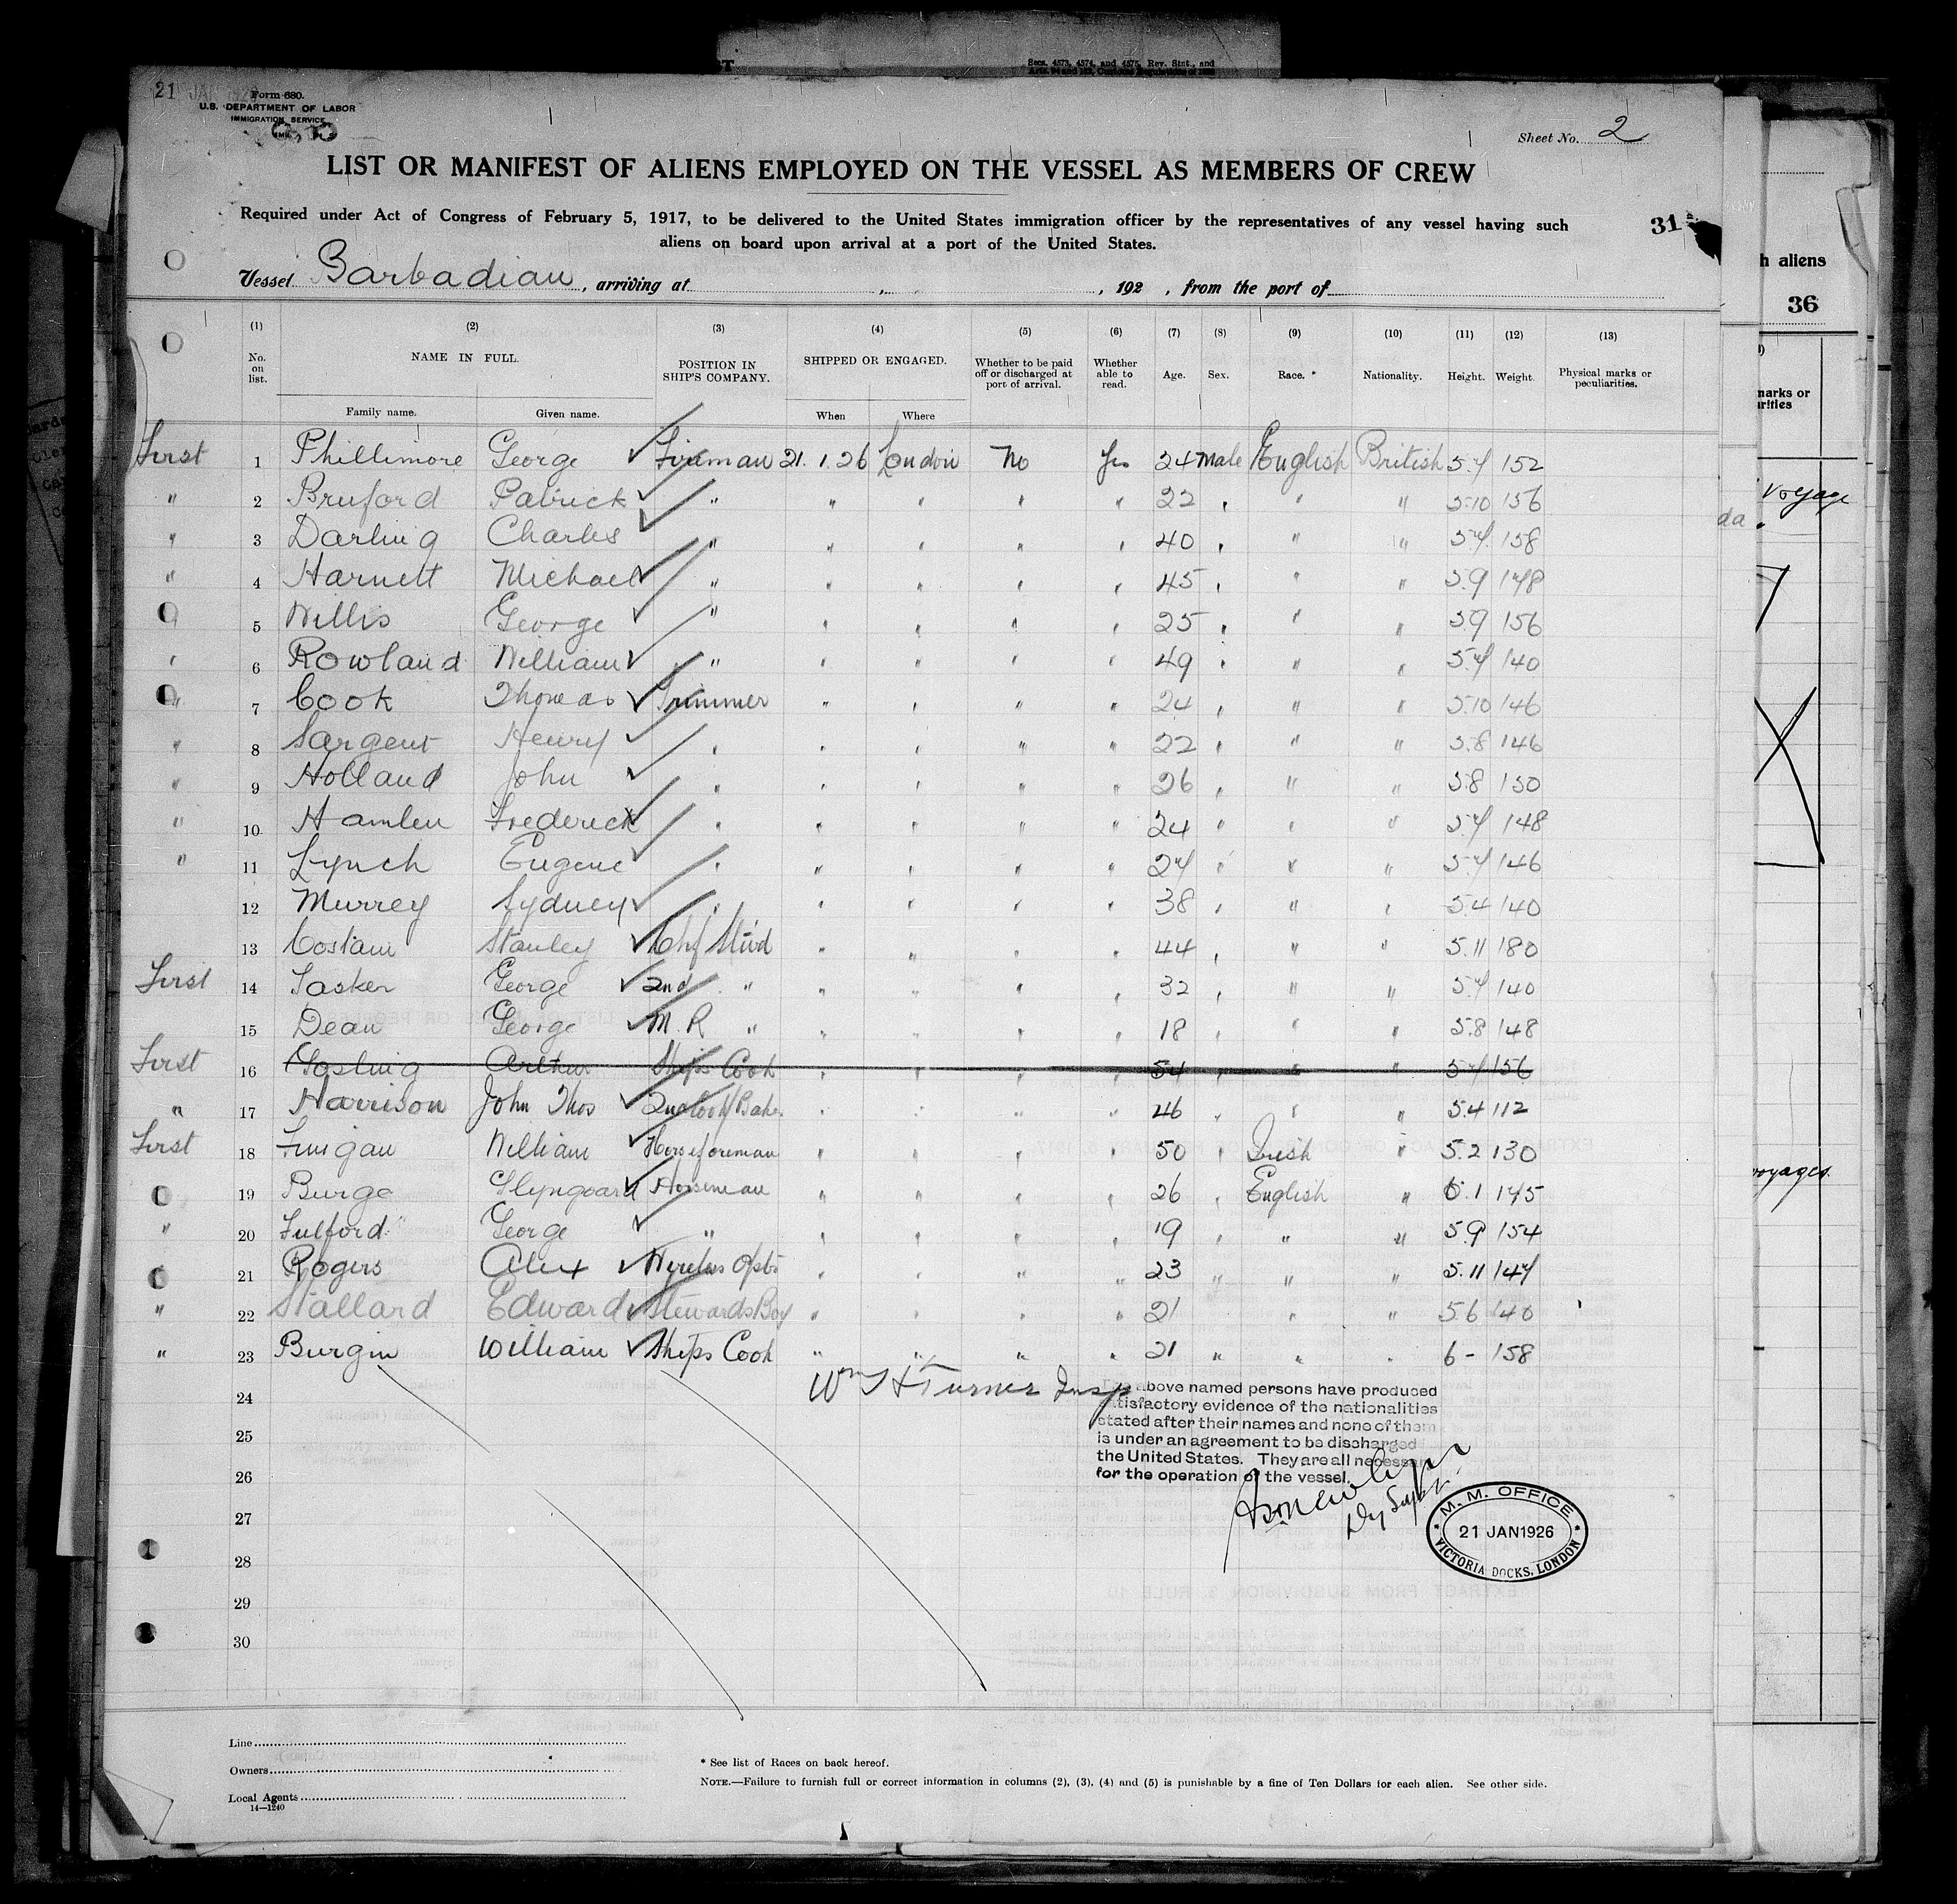 Secs. 4573, 4574, and 4575, Rev. Stat., and
21 JAN 192
Form 680.
U.S. DEPARTMENT OF LABOR
IMMIGRATION SERVICE
Sheet No. 2
LIST OR MANIFEST OF ALIENS EMPLOYED ON THE VESSEL AS MEMBERS OF CREW
Required under Act of Congress of February 5, 1917, to be delivered to the United States immigration officer by the representatives of any vessel having such
aliens on board upon arrival at a port of the United States.
31
h aliens
36
Vessel Barbadian, arriving at , 192 , from the port of
(1) (2) (3) (4) (5) (6) (7) (8) (9) (10) (11) (12) (13)
No. on list. NAME IN FULL. POSITION IN SHIP'S COMPANY. SHIPPED OR ENGAGED. Whether to be paid off or discharged at port of arrival. Whether able to read. Age. Sex. Race. * Nationality. Height. Weight. Physical marks or peculiarities.
Family name. Given name. When Where
marks or
First 1 Phillimore George Fireman 21.1.26 London No Yes 24 Male English British 5.7 152
" 2 Bruford Patrick " " " " " 22 " " " 5.10 156
voyage
" 3 Darling Charles " " " " " 40 " " " 5.7 158
" 4 Harnett Michael " " " " " 45 " " " 5.9 148
5 Willis George " " " " " 25 " " " 5.9 156
" 6 Rowland William " " " " " 49 " " " 5.7 140
" 7 Cook Thomas Trimmer " " " " 24 " " " 5.10 146
" 8 Sargent Henry " " " " " 22 " " " 5.8 146
" 9 Holland John " " " " " 26 " " " 5.8 150
" 10 Hamlen Frederick " " " " " 24 " " " 5.7 148
" 11 Lynch Eugene " " " " " 27 " " " 5.7 146
12 Murrey Sydney " " " " " 38 " " " 5.4 140
13 Costain Stanley Chf Stwd " " " " 44 " " " 5.11 180
First 14 Tasker George 2nd " " " " " 32 " " " 5.7 140
15 Dean George M.R. " " " " " 18 " " " 5.8 148
First 16 Gosling Arthur Ships Cook " " " " 54 " " " 5.7 156
" 17 Harrison John Thos 2nd Cook/Baker " " " " 46 " " " 5.4 112
First 18 Finigan William Horseforeman " " " " 50 " Irish " 5.2 130
voyages
19 Burge Horseman " " " " 26 " English " 6.1 145
" 20 Fulford George " " " " " 19 " " " 5.9 154
21 Rogers Alex Wireless Opt " " " " 23 " " " 5.11 147
" 22 Stallard Edward Stewards Boy " " " " 21 " " " 5.6 140
" 23 Burgin William Ships Cook " " " " 21 " " " 6 - 158
24
Wm H Turner Insp
above named persons have produced
satisfactory evidence of the nationalities
stated after their names and none of them
is under an agreement to be discharged
the United States. They are all necessary
for the operation of the vessel.
25
26
27
28
29
30
M. M. OFFICE
21 JAN 1926
VICTORIA DOCKS, LONDON
Line
Owners
Local Agents
14—1240
* See list of Races on back hereof.
NOTE.—Failure to furnish full or correct information in columns (2), (3), (4) and (5) is punishable by a fine of Ten Dollars for each alien. See other side.